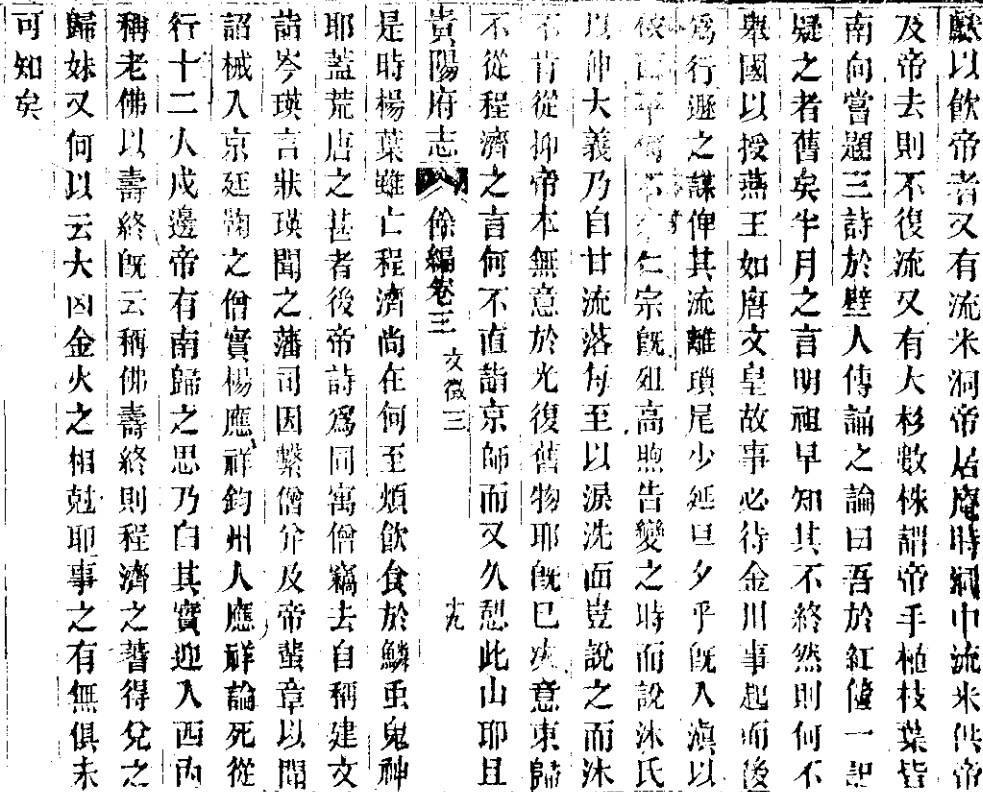 獻以飲帝者又有流米洞帝居庵時洞中流米供帝
及帝去則不復流又有大杉數株謂帝手植枝葉皆
南向嘗題三詩於壁人傳誦之論曰吾於紅僊一記
疑之者舊矣半月之言明祖早知其不終然則何不
舉國以授燕王如唐文皇故事必待金川事起而後
爲行遯之謀俾其流離瑣尾少延旦夕乎既入滇以
仁宗既殂高煦告變之時而說沐氏
以伸大義乃自甘流落每至以淚洗面豈說之而沐
不肯從抑帝本無意於光復舊物耶既已决意東歸
不從程濟之言何不直詣京師而又久憩此山耶且
貴陽府志 餘編卷三 文徵三 十九
是時楊葉雖亡程濟尚在何至煩飲食於鱗虫鬼神
耶蓋荒唐之甚者後帝詩爲同寓僧竊去自稱建文
詣岑瑛言狀瑛聞之藩司因繫僧并及帝蜚章以聞
詔械入京廷鞫之僧實楊應祥鈞州人應祥論死從
行十二人戍邊帝有南歸之思乃白其實迎入西內
稱老佛以壽終既云稱佛壽終則程濟之筮得兌之
歸妹又何以云大凶金火之相尅耶事之有無俱未
可知矣